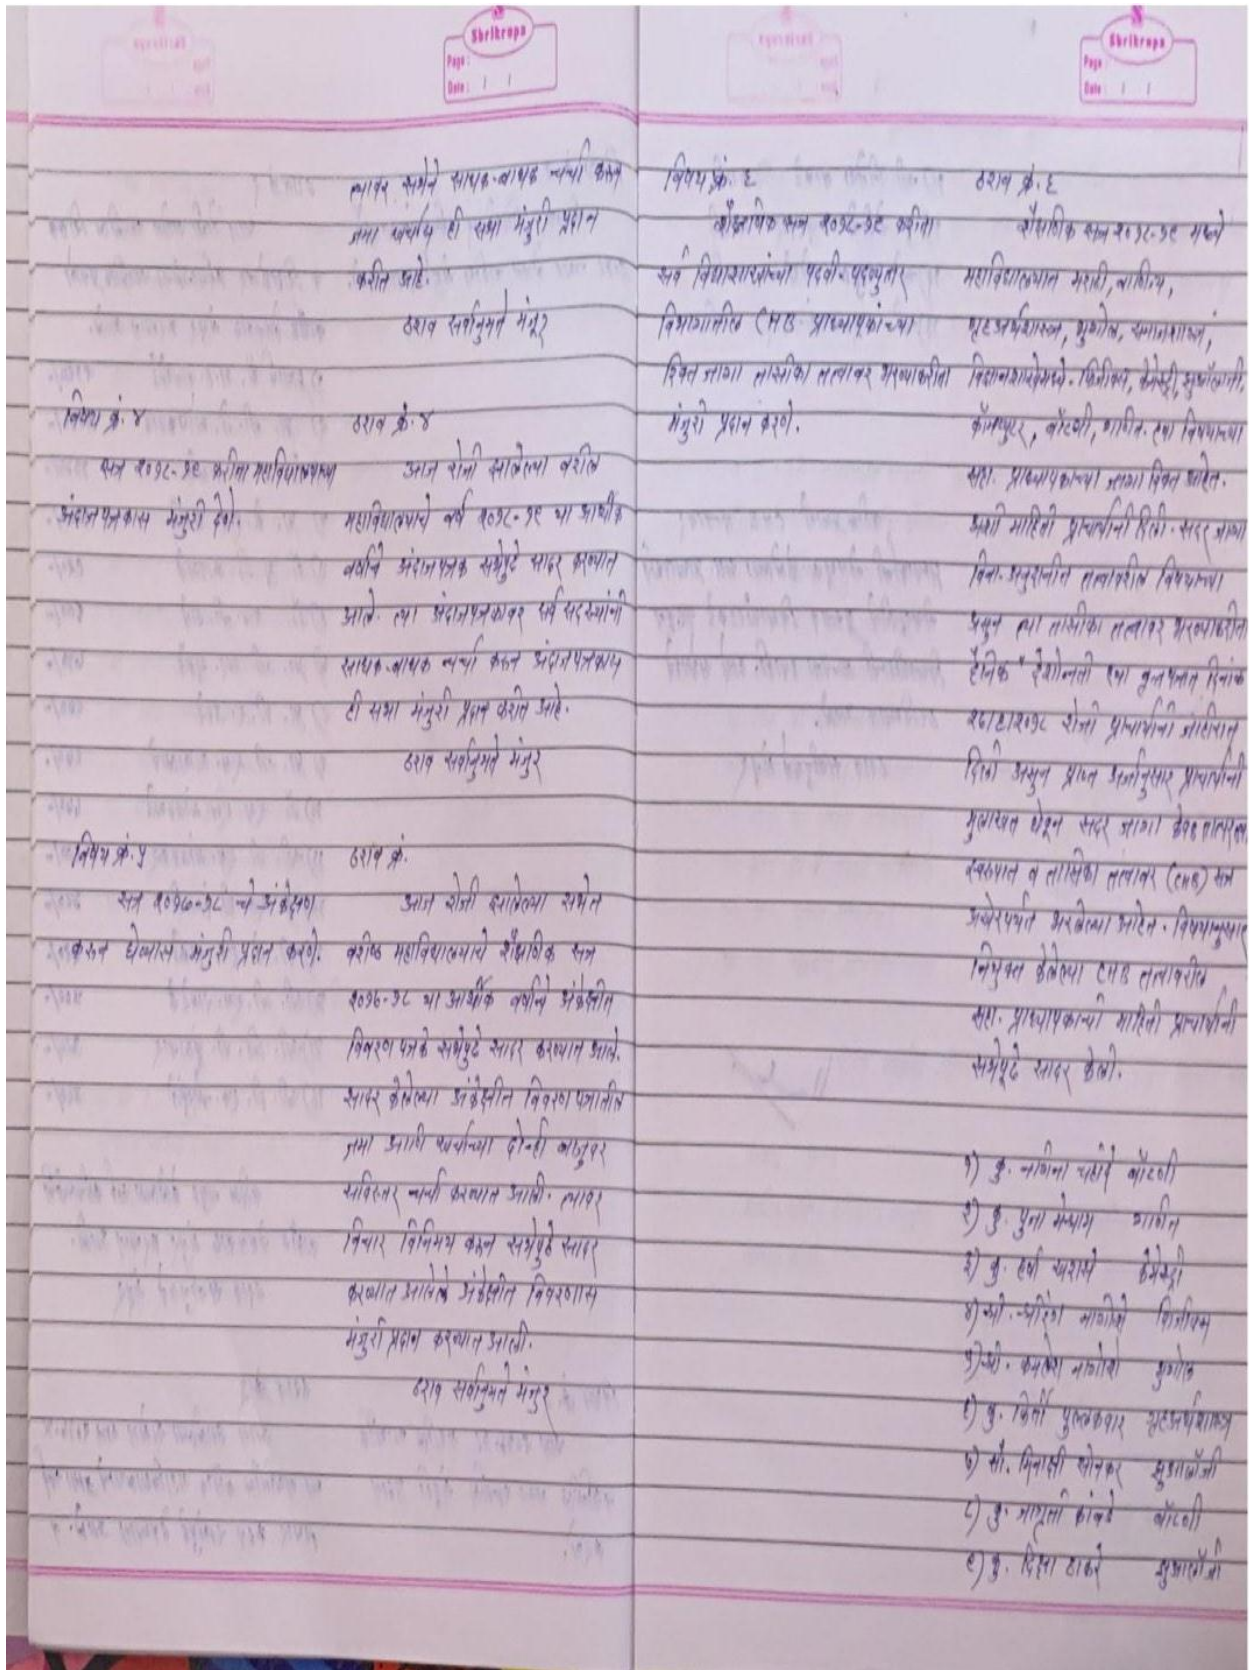 Shrikrupa
Page :
Date :
त्यावर सभेने साधक-बाधक चर्चा करून
जमा खर्चाय ही सभा मंजुरी प्रदान
करीत आहे.
ठराव सर्वानुमते मंजूर
विषय क्रं. ४
सत्र २०१८-१९ करीता महाविद्यालयाच्या
अंदाजपत्रकास मंजुरी देणे.
ठराव क्रं. ४
आज रोजी झालेल्या वरील
महाविद्यालयाचे वर्ष २०१८-१९ या आर्थीक
वर्षाचे अंदाजपत्रक सभेपुढे सादर करण्यात
आले. त्या अंदाजपत्रकावर सर्व सदस्यांनी
साधक-बाधक चर्चा करून अंदाजपत्रकाय
ही सभा मंजुरी प्रदान करीत आहे.
ठराव सर्वानुमते मंजुर
विषय क्रं. ५
सत्र २०१७-१८ चे अंकेक्षण
करून घेण्यास मंजुरी प्रदान करणे.
ठराव क्रं.
आज रोजी झालेल्या सभेत
वरीष्ठ महाविद्यालयाचे शैक्षणिक सत्र
२०१७-१८ या आर्थीक वर्षाचे अंकेक्षीत
विवरण पत्रके सभेपुढे सादर करण्यात आले.
सादर केलेल्या अंकेक्षीत विवरण पत्रातील
जमा आणि खर्चाच्या दोन्ही बाजुवर
सविस्तर चर्चा करण्यात आली. त्यावर
विचार विनिमय करून सभेपुढे सादर
करण्यात आलेले अंकेक्षीत विवरणास
मंजुरी प्रदान करण्यात आली.
ठराव सर्वानुमते मंजुर
Shrikrupa
Page :
Date :
विषय क्रं. ६
शैक्षणिक सत्र २०१८-१९ करीता
सर्व विद्याशाखांच्या पदवी-पदव्युत्तर
विभागातील CHB प्राध्यापकांच्या
रिक्त जागा तासीका तत्वावर भरण्याकरीता
मंजुरी प्रदान करणे.
ठराव क्रं. ६
शैक्षणिक सत्र २०१८-१९ मध्ये
महाविद्यालयात मराठी, वाणिज्य,
गृहअर्थशास्त्र, भुगोल, समाजशास्त्र,
विज्ञानशाखेमध्ये- फिजीक्स, केमेस्ट्री, झुऑलॉजी,
कॉम्प्युटर, बॉटनी, गणित. ह्या विषयाच्या
सहा. प्राध्यापकाच्या जागा रिक्त आहेत.
अशी माहिती प्राचार्यांनी दिली. सदर जागा
विना-अनुदानीत तत्वावरील विषयाच्या
असुन त्या तासीका तत्वावर भरण्याकरीता
दैनिक देशोन्नती ह्या वृत्तपत्रात दिनांक
२८/८/२०१८ रोजी प्राचार्यांनी जाहीरात
दिली असुन प्राप्त अर्जानुसार प्राचार्यांनी
मुलाखत घेवून सदर जागा केवळ तात्पुरत्या
स्वरूपात व तासिका तत्वावर (CHB) सत्र
अखेरपर्यंत भरलेल्या आहेत. विषयानुसार
नियुक्त केलेल्या CHB तत्वावरील
सहा. प्राध्यापकाची माहिती प्राचार्यांनी
सभेपूढे सादर केली.
१) कु. नगिना चहांदे बॉटनी
२) कु. पुजा मेश्राम गणित
३) कु. हर्षा खरासे केमेस्ट्री
४) श्री. श्रीरंग नागोसे फिजीक्स
५) श्री. कमलेश नागोसे भुगोल
६) कु. किर्ती पुल्लकवार गृहअर्थशास्त्र
७) सौ. मिनाक्षी सोनकर झुऑलॉजी
८) कु. जागृती कांबळे बॉटनी
९) कु. दिक्षा ठाकरे झुऑलॉजी